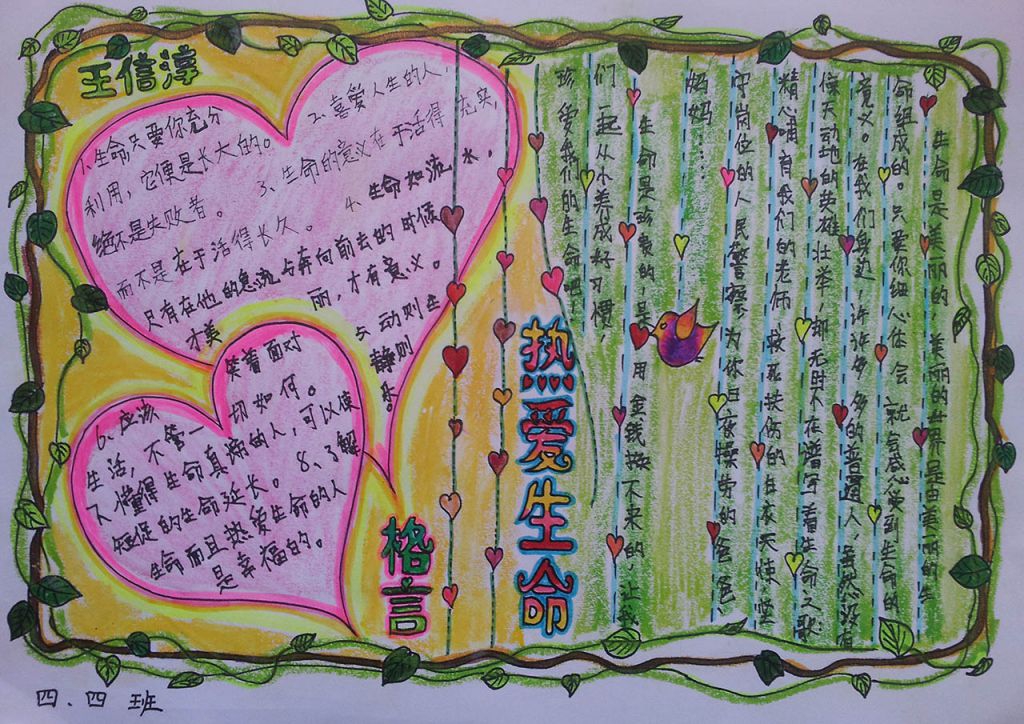 王信淳
1.生命只要你充分
利用,它便是长大的。
2.喜爱人生的人,
绝不是失败者。
3.生命的意义在于活得充实,
而不是在于活得长久。
4.生命如流水,
只有在他的急流与奔向前去的时候
才美丽,才有意义。
动则生
静则乐。
6、应该笑着面对
生活,不管一切如何。
7、懂得生命真谛的人,可以使
短促的生命延长。 8、了解
生命而且热爱生命的人
是幸福的。
格言
热爱生命
生命是美丽的 美丽的世界是由美丽的生
命组成的。只要你细心体会 就会感受到生命的
意义。在我们身边,许许多多的普通人,虽然没有
惊天动地的英雄壮举 却无时不在谱写着生命之歌
精心哺育我们的老师 救死扶伤的白衣天使、坚
守岗位的人民警察,为你日夜操劳的爸爸、
妈妈……
生命是珍贵的,是用金钱换不来的,让我
们一起从小养成好习惯,
珍爱我们的生命吧!
四.四班